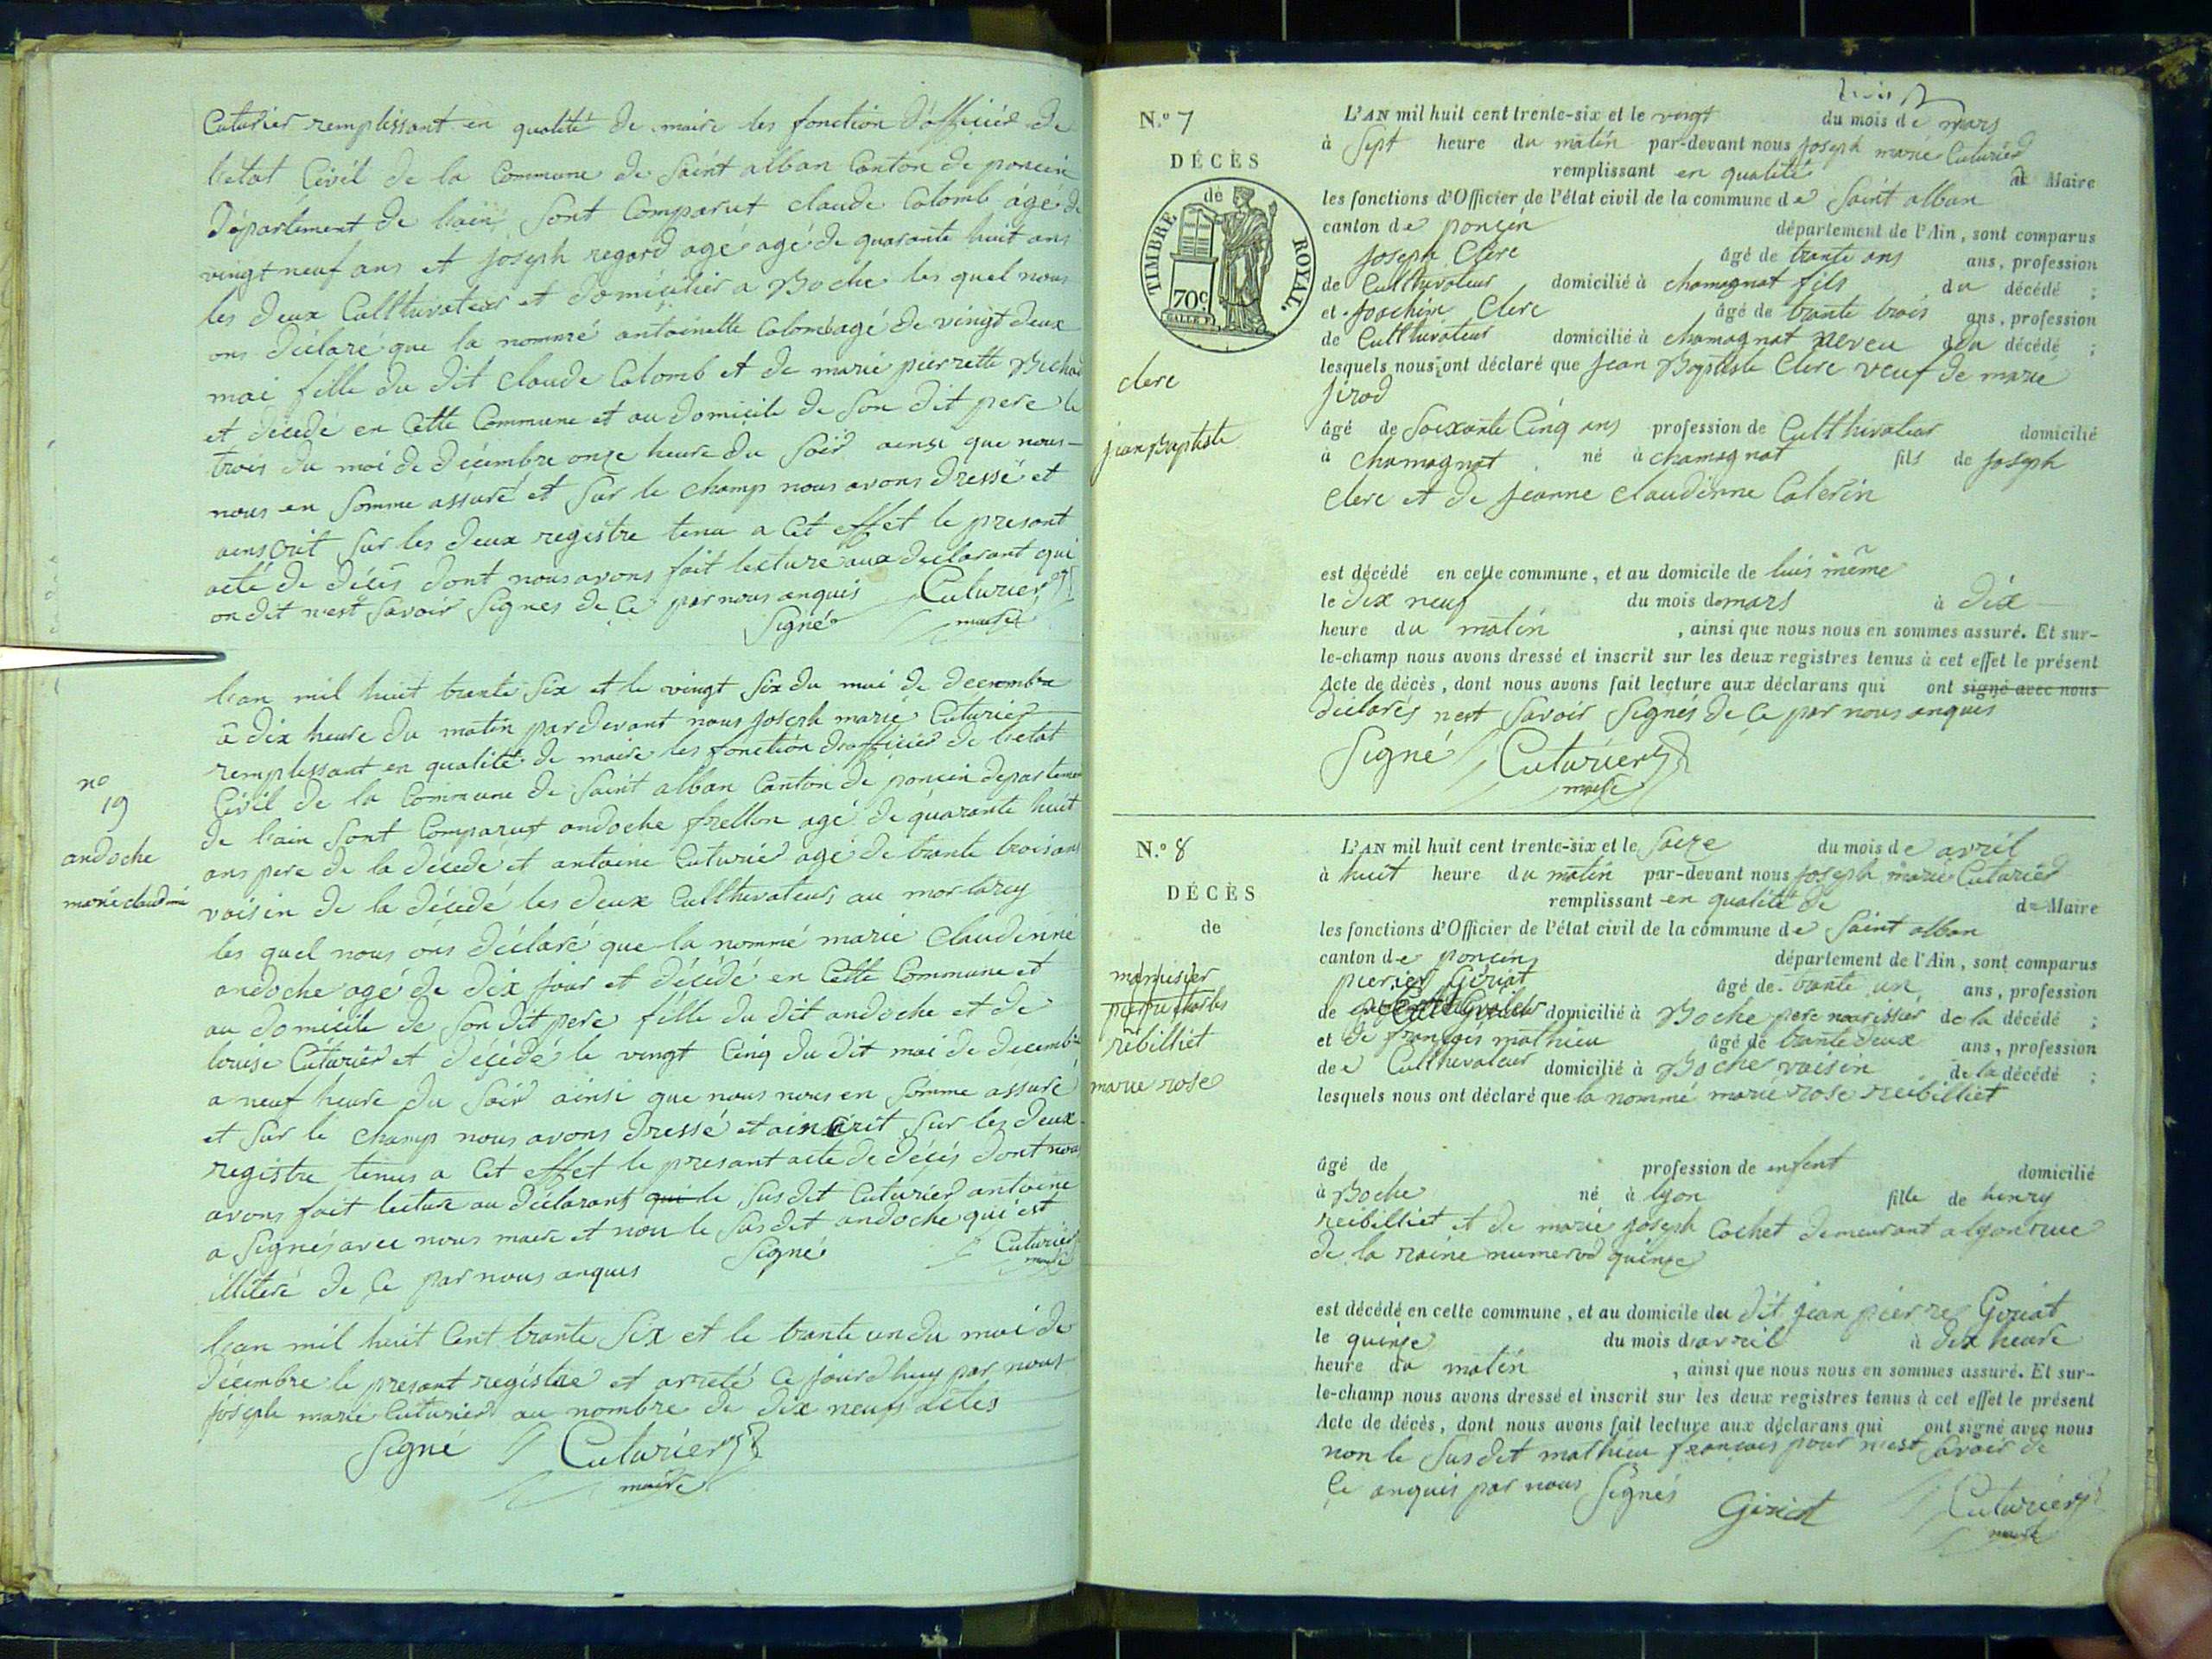 Cuturier remplissant en qualité de maire les fonction d'officier de
l'etat Civil de la Commune de Saint alban Canton de poncin
Département de l'ain, Sont Comparut claude Colomb âgé de
vingt neuf ans et joseph regard agé agé de quarante huit ans
les deux Cullthivateur et domicilier a Boche les quel nous
ons déclaré que la nommé antoinette Colomb agé de vingt deux
moi fille du dit claude Colomb et de marie pierrette
et décédé en Cette Commune et au domicile de Son dit pere le
trois du moi de décembre onze heure du Soir ainsi que nous
nous en Somme assuré et Sur le champ nous avons dressé et
ainscrit Sur les deux registre tenu a Cet effet le presant
acte de décès dont nous avons fait lecture aux declarant qui
on dit n'est Savoir Signes de Ce par nous anquis Cuturier
Signé maire
l'an mil huit trante Six et le vingt Six du moi de decembre
a dix heure du matin pardevant nous joseph marie Cuturier
remplissant en qualité de maire les fonction d'officier de l'etat
Civil de la Commune de Saint alban Canton de poncin departement
de l'ain Sont Comparut andoche frellon agé de quarante huit
ans pere de la décedé et antoine Cuturier agé de trante trois ans
voisin de la décedé les deux Cullthivateur, au
les quel nous ons déclaré que la nommé marie Claudinne
andoche agé de dix jour et décédé en Cette Commune et
au domicile de Son dit pere fille du dit andoche et de
louise Cuturier et décédé le vingt Cinq du dit moi de décembre
a neuf heure du Soir ainsi que nous nous en Somme assuré
et Sur le champ nous avons dressé et ainscrit Sur les deux
registre tenus a Cet effet le presant acte de décés dont nous
avons fait lecture au declarant qui le Sus dit Cuturier antoine
a Signés avec nous maire et non le Sus dit andoche qui est
illiteré de Ce par nous anques Signé Cuturier
maire
n° 19
andoche
marie claudine
l'an mil huit Cent trante Six et le trante un du moi de
décembre le presant registre et arreté Ce jourd'huy par nous
joseph marie Cuturier au nombre de dix neufs actes
Signé Cuturier
maire
N.° 7
DÉCÈS
de
TIMBRE ROYAL.
70c
clerc
jean Baptiste
L'AN mil huit cent trente-six et le vingt du mois de mars
à Sept heure du matin par-devant nous joseph marie Cuturier
remplissant en qualité de Maire
les fonctions d'Officier de l'état civil de la commune de Saint alban
canton de poncin département de l'Ain, sont comparus
joseph Clerc âgé de trante ans ans, profession
de Cullthivateur domicilié à chamagnat fils du décédé ;
et joachim Clerc âgé de trante trois ans, profession
de Cullthivateur domicilié à chamagnat neveu du décédé ;
lesquels nous ont déclaré que jean Baptiste Clerc veuf de marie
jirod
âgé de Soixante Cinq ans profession de Cultthivateur domicilié
à chamagnat né à chamagnat fils de joseph
clerc et de jeanne claudinne Calerin
est décédé en cette commune, et au domicile de luis même
le dix neuf du mois de mars à dix
heure du matin , ainsi que nous nous en sommes assuré. Et sur-
le-champ nous avons dressé et inscrit sur les deux registres tenus à cet effet le présent
Acte de décès, dont nous avons fait lecture aux déclarans qui ont signé avec nous
déclarés n'est Savoir Signés de Ce par nous anques
Signé Cuturier
maire
N.° 8
DÉCÈS
de
rebilliet
marie rose
L'AN mil huit cent trente-six et le Seize du mois de avril
à huit heure du matin par-devant nous joseph marie Cuturier
remplissant en qualité de de Maire
les fonctions d'Officier de l'état civil de la commune de Saint alban
canton de poncin département de l'Ain, sont comparus
pierre Giriat âgé de trante un ans, profession
de Cullthivateur domicilié à Boche pere nourissier de la décédé ;
et de françois mathieu âgé de trante deux ans, profession
de Cullthivateur domicilié à Boche voisin de la décédé ;
lesquels nous ont déclaré que la nommé marie rose reibilliet
âgé de profession de enfent domicilié
à Boche né à lyon fille de henry
reibilliet et de marie joseph Cochet demeurant a lyon rue
de la raine numerod quinze
est décédé en cette commune, et au domicile du dit jean pierre Giriat
le quinze du mois d'avril à dix heure
heure du matin , ainsi que nous nous en sommes assuré. Et sur-
le-champ nous avons dressé et inscrit sur les deux registres tenus à cet effet le présent
Acte de décès, dont nous avons fait lecture aux déclarans qui ont signé avec nous
non le Sus dit mathieu françois pour n'est Savoir de
Ce anquis par nous Signés Giriat Cuturier
maire